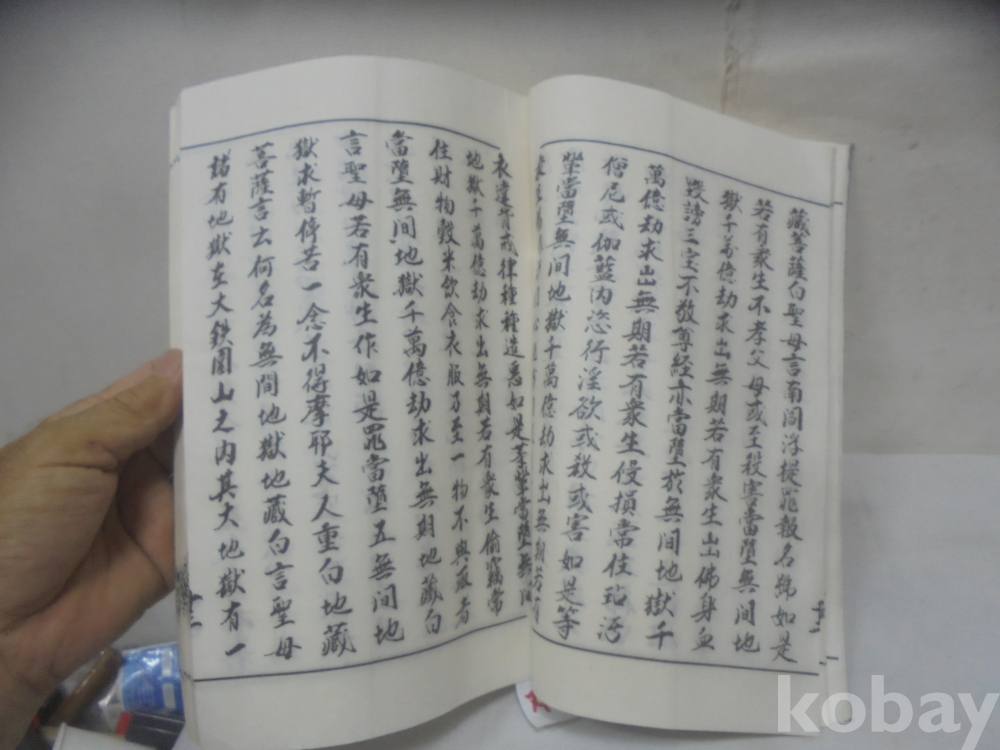 藏菩薩白聖母言南閻浮提罪報名號如是
若有衆生不孝父母或至殺害當墮無間地
獄千万億劫求出無期若有衆生出佛身血
毀謗三宝不敬尊經亦當墮於無間地獄千
萬億劫求出無期若有衆生侵損常住玷污
僧尼或伽藍內恣行淫欲或殺或害如是等
輩當墮無間地獄千萬億劫求出無期若有
衣違背戒律種種造惡如是等輩當墮無間
地獄千萬億劫求出無期若有衆生偷竊常
住財物穀米飲食衣服乃至一物不與取者
當墮無間地獄千萬億劫求出無期地藏白
言聖母若有衆生作如是罪當墮五無間地
獄求暫停苦一念不得摩耶夫人重白地藏
菩薩言云何名為無間地獄地藏白言聖母
諸有地獄在大鉄圍山之內其大地獄有一
kobay